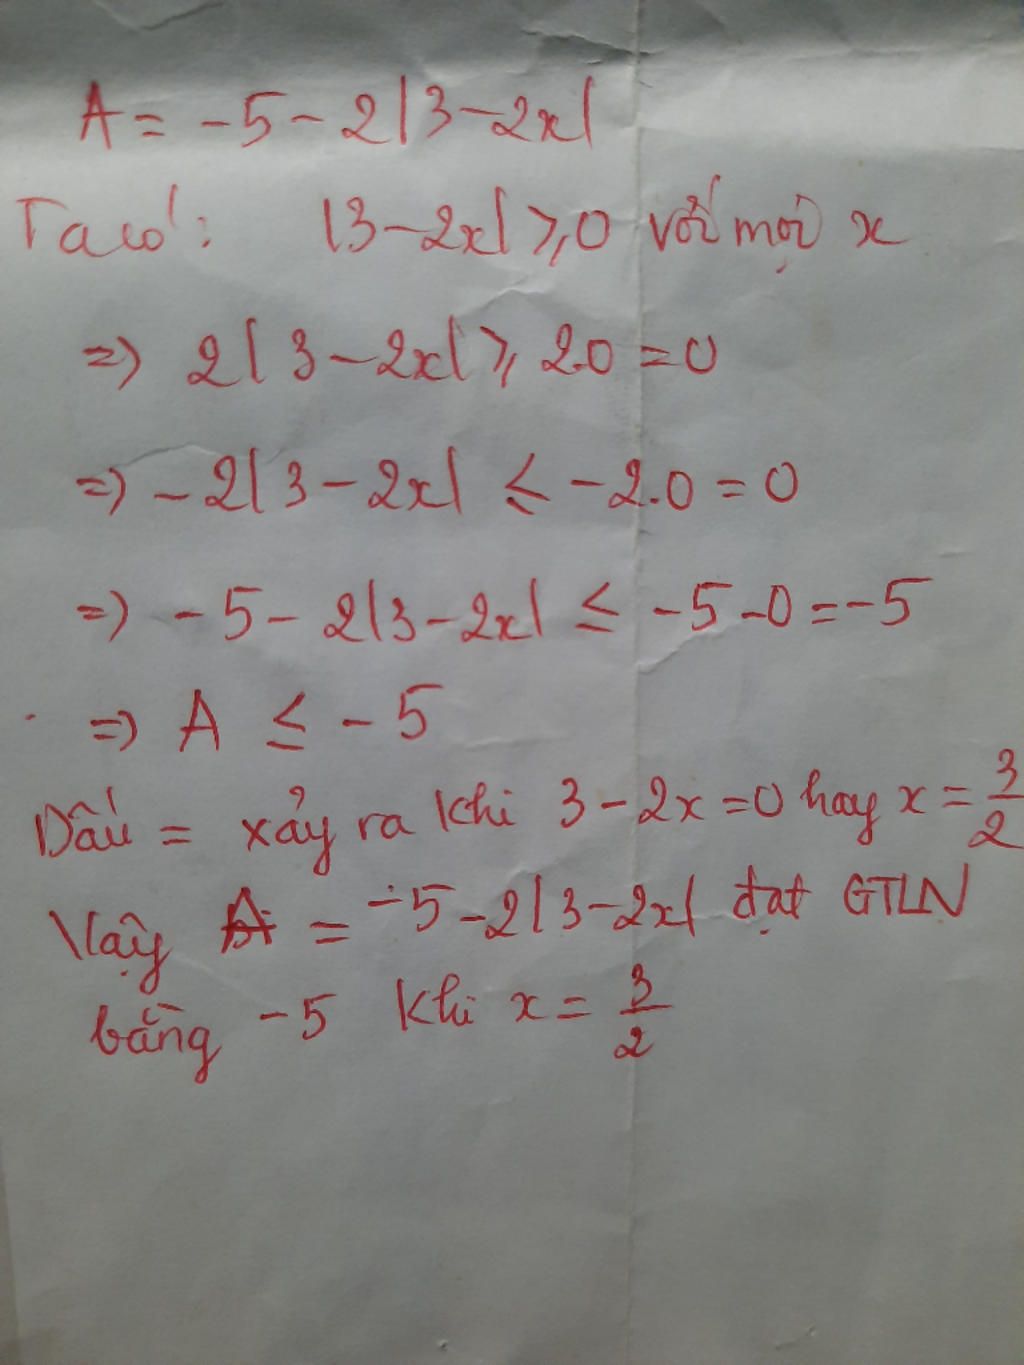 A = -5 - 2|3-2x|
Ta có: |3-2x| ≥ 0 với mọi x
=> 2|3-2x| ≥ 2.0 = 0
=> -2|3-2x| ≤ -2.0 = 0
=> -5 - 2|3-2x| ≤ -5 -0 = -5
=> A ≤ -5
Dấu = xảy ra khi 3-2x=0 hay x = 3/2
Vậy A = -5-2|3-2x| đạt GTLN
bằng -5 khi x = 3/2